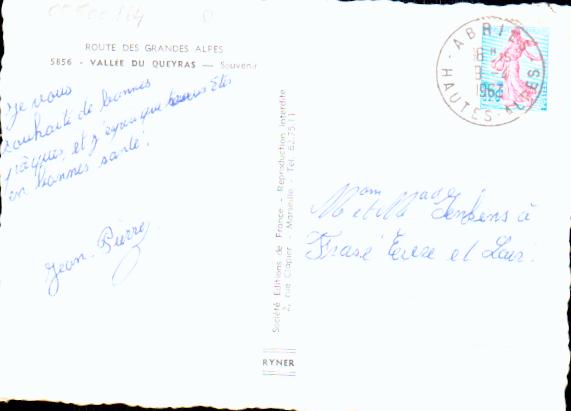 ROUTE DES GRANDES ALPES
5856 - VALLÉE DU QUEYRAS — Souvenir
Je vous
souhaite de bonnes
pâques, et j'espère que vous êtes
en bonnes santé.
Jean-Pierre
Société Editions de France - Reproduction interdite
2, rue Clapier - Marseille - Tél. 62.75.11
RYNER
ABRIÈS
18 H
1963
HAUTES-ALPES
M et Mme
Frasé Eure et Loir.